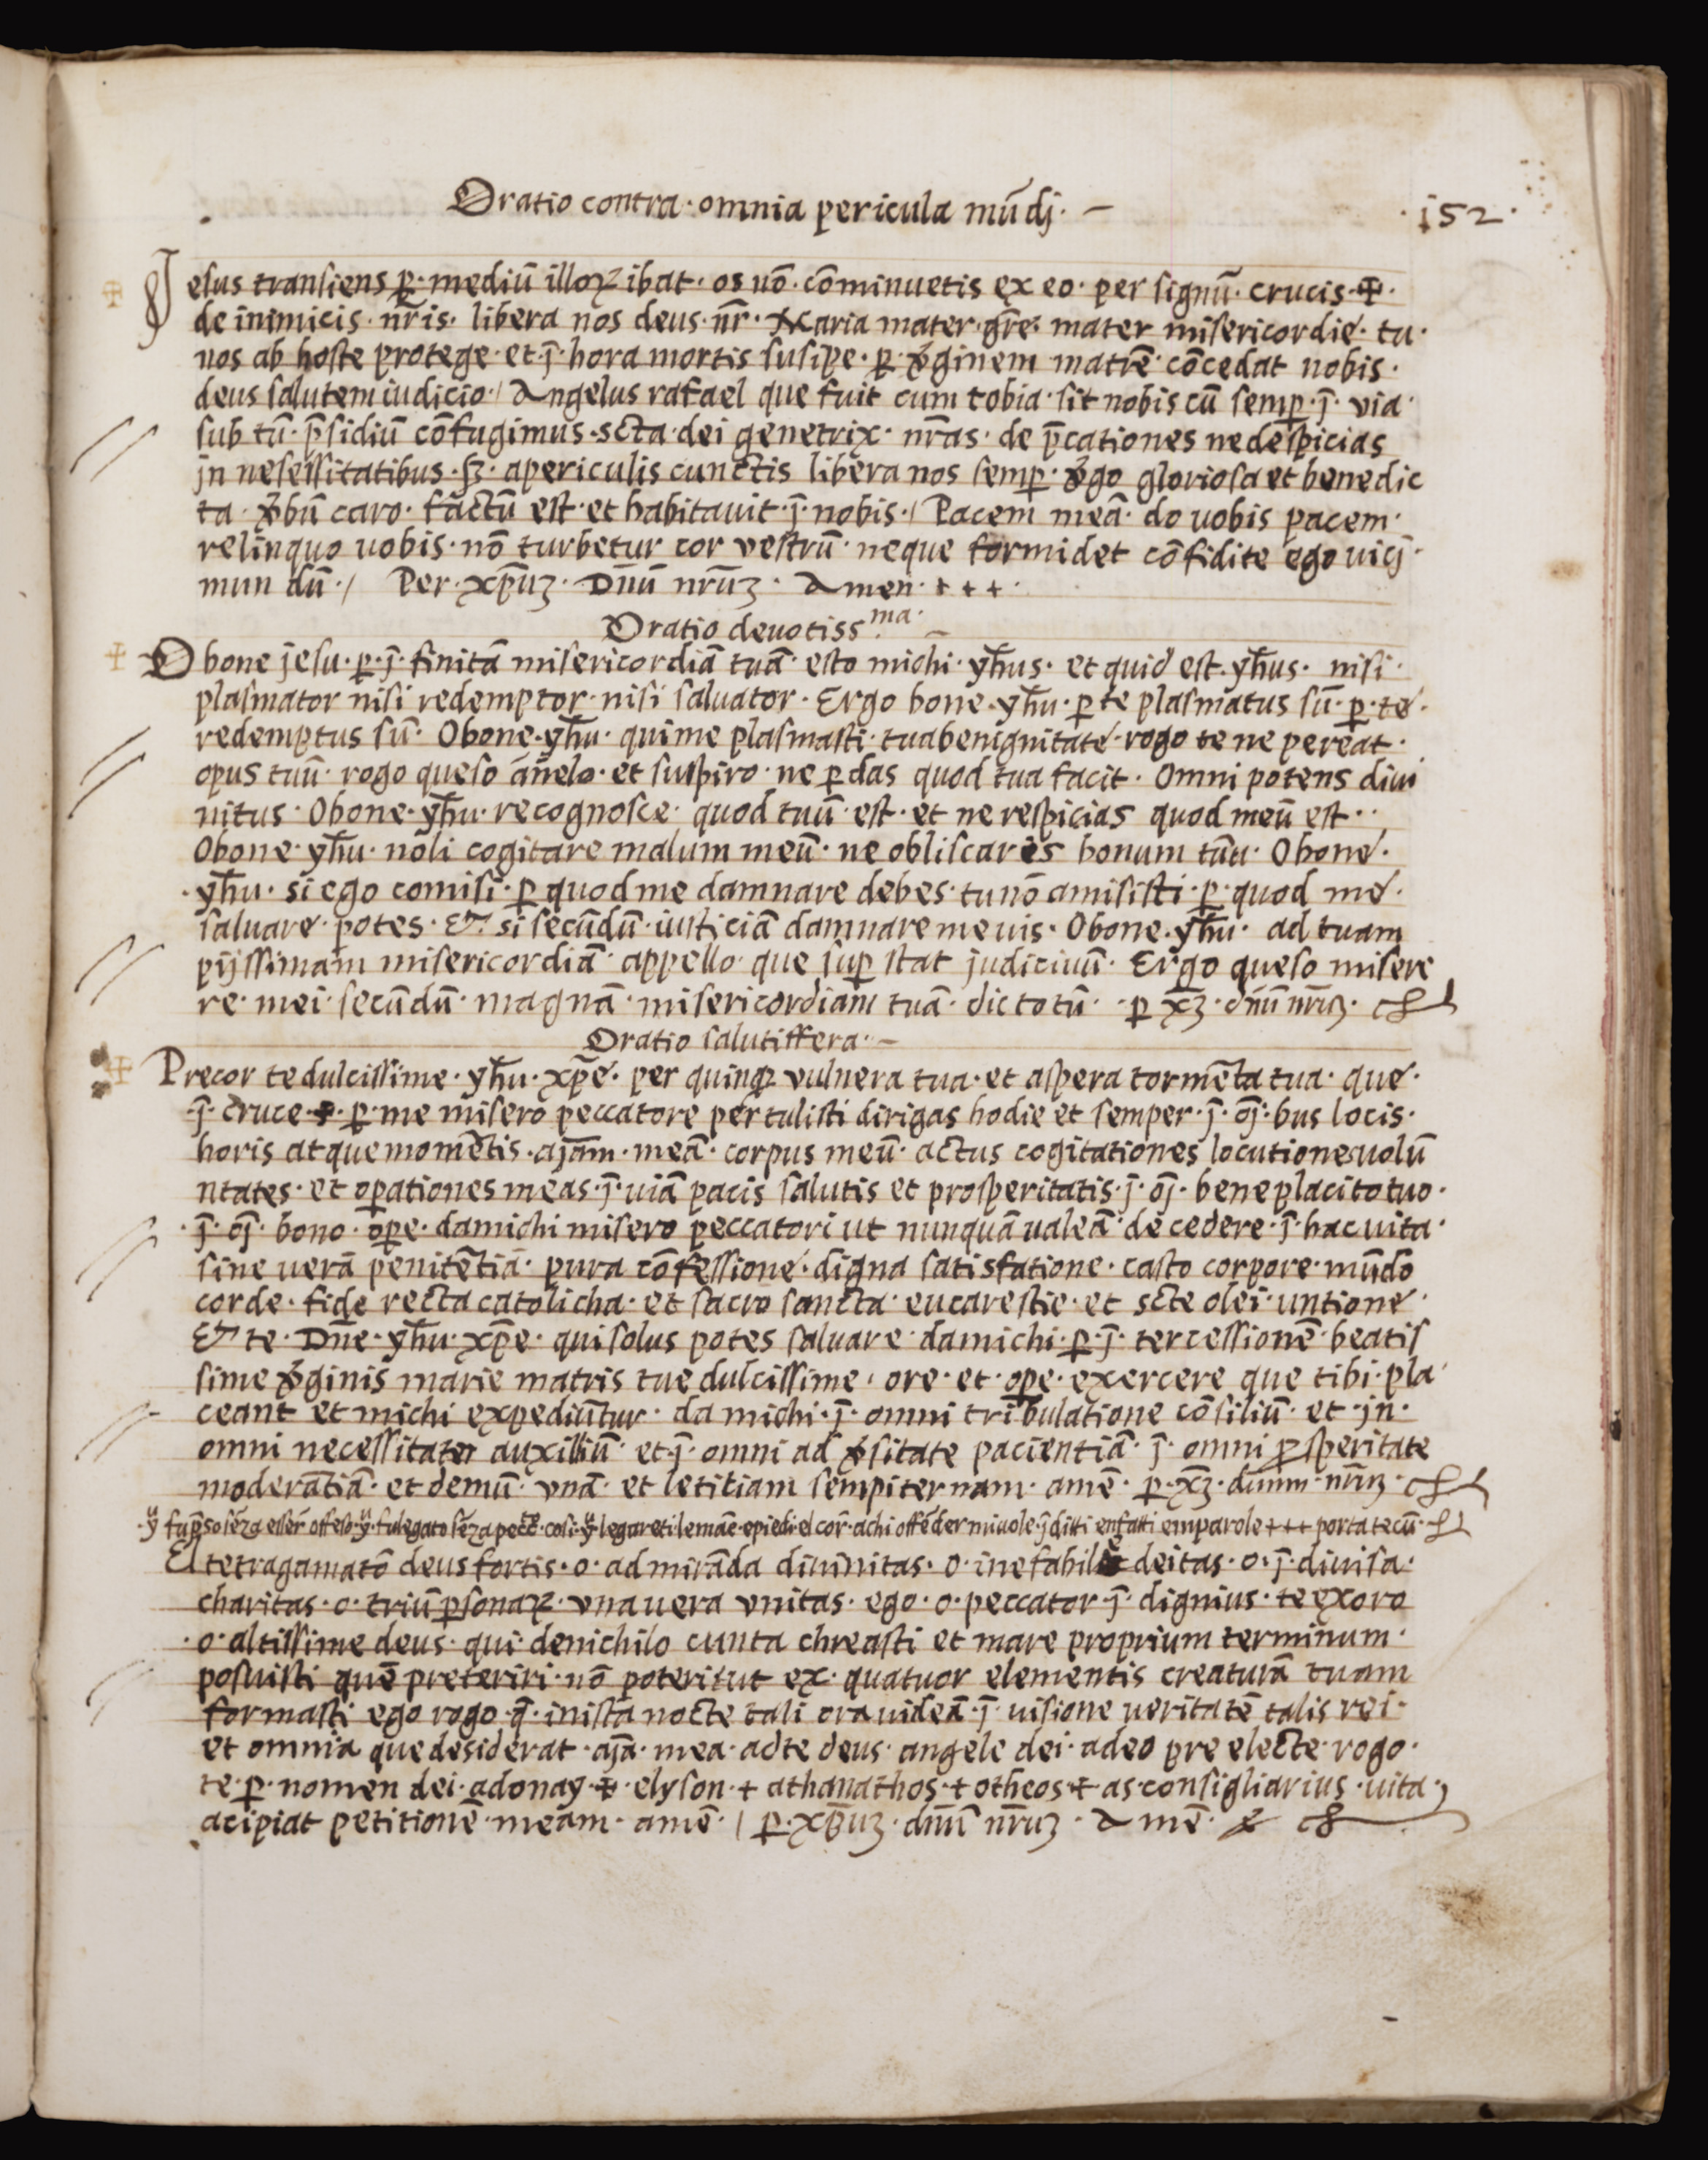 Oratio contra · omnia pericula mūdj · —
· j52 ·
Jesus transiens p̱ · mediū illoꝝ ibat · os nō · cōminuetis ex eo · per signū · crucis · ✠ ·
de inimicis · nr̄is · libera nos deus · nr̄ · Maria mater · gr̄e · mater misericordie · tu ·
nos ab hoste protege · et · j̄ · hora mortis susipe · ꝑ · v̓ginem matrē · cōcedat nobis ·
deus salutem iudicio / Angelus rafael que fuit cum tobia · sit nobis cū semꝑ · j̄ · via ·
sub tū · p̄sidiū cōfugimus · scta · dei genetrix · nr̄as · de p̄cationes nedespicias
jn nesessitatibus · sꝫ · apericulis cunctis libera nos semꝑ · v̓go gloriosa et benedic
ta · v̓bū caro · factū est · et habitauit · j̄ · nobis · / Pacem meā · do uobis pacem ·
relinquo uobis · nō turbetur cor vestrū · neque formidet cōfidite ego uicj ·
mun dū · / Per · xp̄uꝫ · Dn̄ū nr̄uꝫ · Amen · + + + ·
Oratio deuotiss · ma · —
O bone jesu · ꝑ · j̄ · finitā misericordiā tuā · esto michi · yh̄us · et quid est · yh̄us · nisi ·
plasmator nisi redemptor · nisi saluator · Ergo bone · yh̄u · ꝑ te plasmatus sū · ꝑ · te ·
redemptus sū · Obone · yh̄u · quime plasmasti · tuabenignitate · rogo te ne pereat ·
opus tuū · rogo queso anelo · et suspiro · ne ꝑdas quod tua facit · Omni potens diui
nitus · Obone · yh̄u · recognosce · quod tuū · est · et ne respicias quod meū est · ·
Obone · yh̄u · noli cogitare malum meū · ne obliscaris bonum tūu · Obone ·
· yh̄u · si ego comisi · ꝑ quod me damnare debes · tu nō amisisti · ꝑ · quod me ·
saluare · potes · Et si secūdū · iusticiā damnare me uis · Obone · yh̄u · ad tuam
pijssimam misericordiā · appello · que suꝑ stat judiciuū · Ergo queso misere
re · mei · secūdū · magnā · misericordiam tuā · dic totū · · ꝑ xp̄ꝫ · dn̄ū nr̄uꝫ ·
Oratio salutiffera · —
Precor te dulcissime · yh̄u · xp̄e · per quinqꝫ vulnera tua · et aspera tormēta tua · que ·
· j̄ · cruce · ✠ · ꝑ · me misero peccatore pertulisti dirigas hodie et semper · j̄ · oj̄ · bus locis ·
horis atque momētis · ajam · meā · corpus meū · actus cogitationes locutionesuolū
ntates · et oꝑationes meas · j̄ · uiā pacis salutis et prosperitatis · j̄ · oj̄ · beneplacito tuo ·
· j̄ · oj̄ · bono · oꝑe · damichi misero peccatori ut nunquā ualeā · de cedere · j̄ · hac uita ·
sine uerā penitētiā · pura cōfessione · digna satisfatione · casto corpore · mūdo
corde · fide recta catolicha · et sacro sancta · eucarestie · et scte olei · untione ·
Et te · Dn̄e · yh̄u · xp̄e · qui solus potes saluare · damichi · ꝑ · j̄ · tercessionē · beatis
sime v̓ginis marie matris tue dulcissime · ore · et · oꝑe · exercere que tibi · pla
ceant et michi expediūtur · da michi · j̄ · omni tribulatione cōsiliū · et · jn ·
omni necessitater auxilliū · et · j̄ · omni ad v̓sitate pacientiā · j̄ · omni ꝓsperitate
moderātiā · et demū · vnā · et letitiam sempiternam · amē · ꝑ · xp̄ꝫ · dn̄um · nr̄uꝫ ·
fu p̄so sēza esser offeso · fulegato sēza pecc̄ · cosi · legareti lemāe · epiedi · el cor · achi offēder mi uole · j̄ ditti enfatti emparole + + + porta tecū ·
El tetragamatō deus fortis · o · admirāda diuinitas · o · inefabil deitas · o · j̄ · diuisa ·
charitas · o · triū ꝑsonaꝝ · vna uera vnitas · ego · o · peccator · j̄ · dignius · te exoro
· o · altissime deus · qui · denichilo cunta chreasti et mare proprium terminum ·
posuisti quē preteriri · nō poteritut ex · quatuor elementis creaturā tuam
formasti ego rogo · q̄ · inistā nocte tali ora uideā · j̄ · uisione ueritatē talis rei ·
et omnia que desiderat · aja · mea · adte deus · angele dei · adeo pre electe · rogo ·
te · ꝑ · nomen dei · adonay · ✠ · elyson · + athanathos · + otheos · + as · consigliarius · uita ·
acipiat petitionē · meam · amē · / ꝑ · xp̄uꝫ · dn̄ū nr̄uꝫ · Amē ·